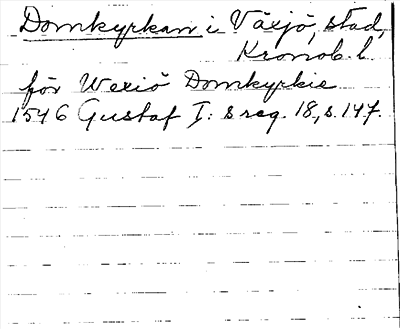 Domkyrkan i Växjö, stad,
Kronob. l
för Wexiö Domkyrkie
1546 Gustaf I: s reg. 18, s. 147.